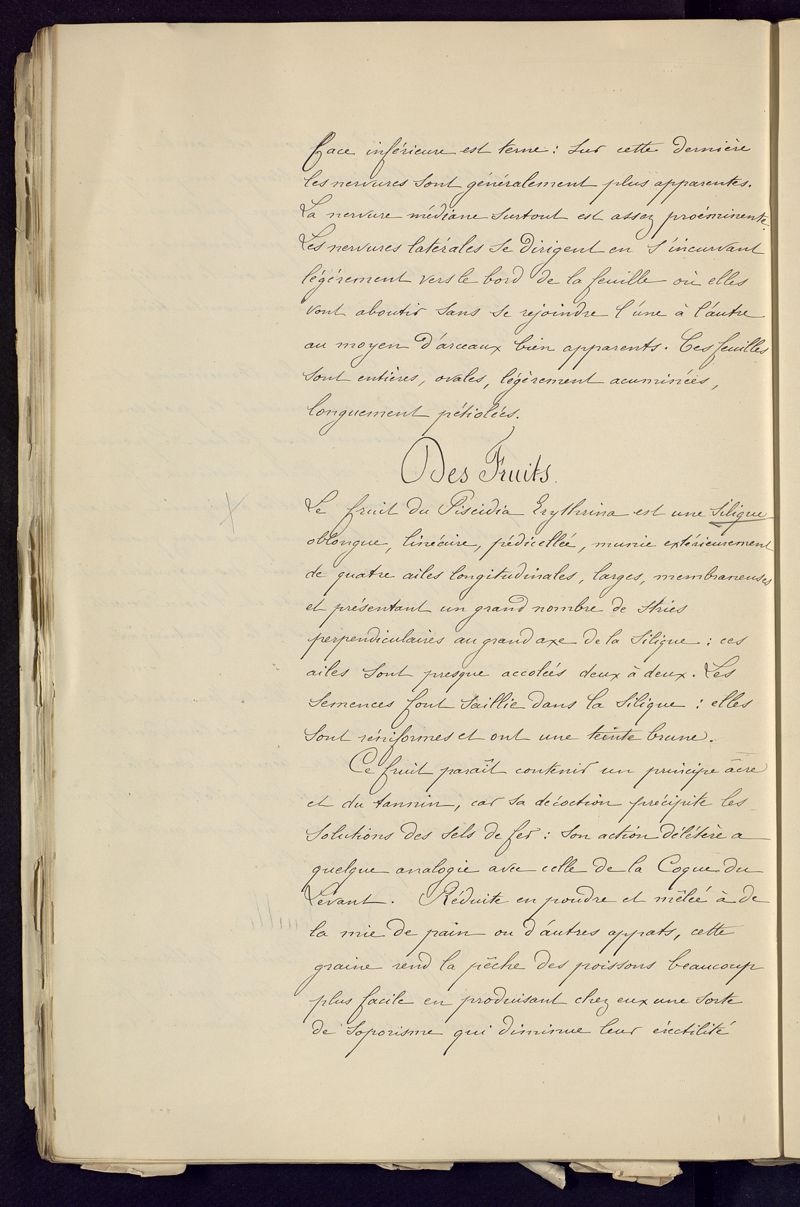 face inférieure est terne : sur cette dernière
les nervures sont généralement plus apparentes.
La nervure médiane surtout est assez proéminente.
Les nervures latérales se dirigent en s'incurvant
légèrement vers le bord de la feuille où elles
vont aboutir sans se rejoindre l'une à l'autre
au moyen d'arceaux bien apparents. Ces feuilles
sont entières, ovales, légèrement acuminées,
longuement pétiolées.
Des Fruits.
Le fruit du Piscidia Erythrina est une Silique
oblongue, linéaire, pédicellée, munie extérieurement
de quatre ailes longitudinales, larges, membraneuses
et présentant un grand nombre de stries
perpendiculaires au grand axe de la Silique : ces
ailes sont presque accolées deux à deux. Les
semences font saillie dans la Silique : elles
sont réniformes et ont une teinte brune.
Ce fruit paraît contenir un principe âcre
et du tannin, car sa décoction précipite les
solutions des sels de fer : son action délétère a
quelque analogie avec celle de la Coque du
Levant. Réduite en poudre et mêlée à de
la mie de pain ou d'autres appats, cette
graine rend la pêche des poissons beaucoup
plus facile en produisant chez eux une sorte
de soporisme qui diminue leur érectilité